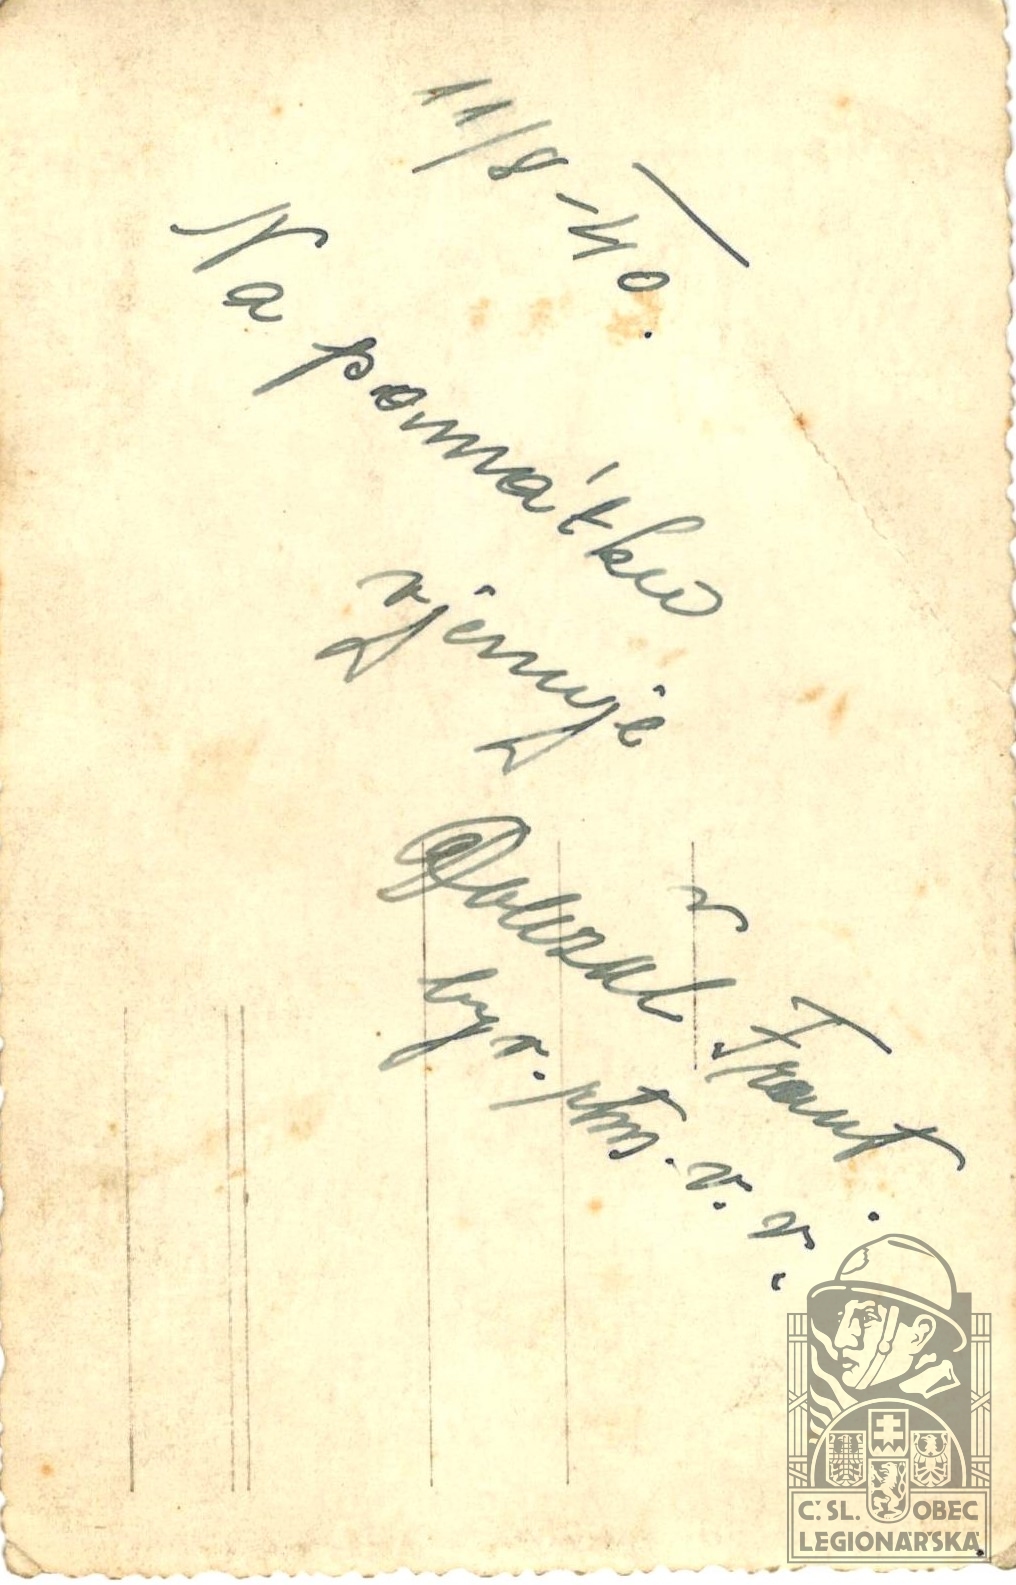 11/8-40.
Na pomnátku
vjenuje
Doležal Frant.
byv. ptm. v. v.
Č. SL. OBEC
LEGIONÁŘSKÁ